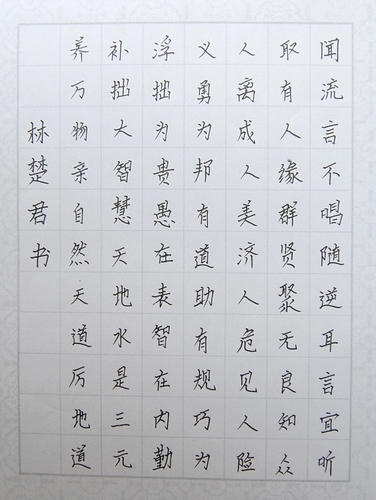 闻流言不唱随逆耳言宜听
取有人缘群贤聚无良知众
人离成人美济人危见人险
义勇为邦有道助有规巧为
浮拙为贵愚在表智在内勤
补拙大智慧天地水是三元
养万物亲自然天道厉地道
林楚君书